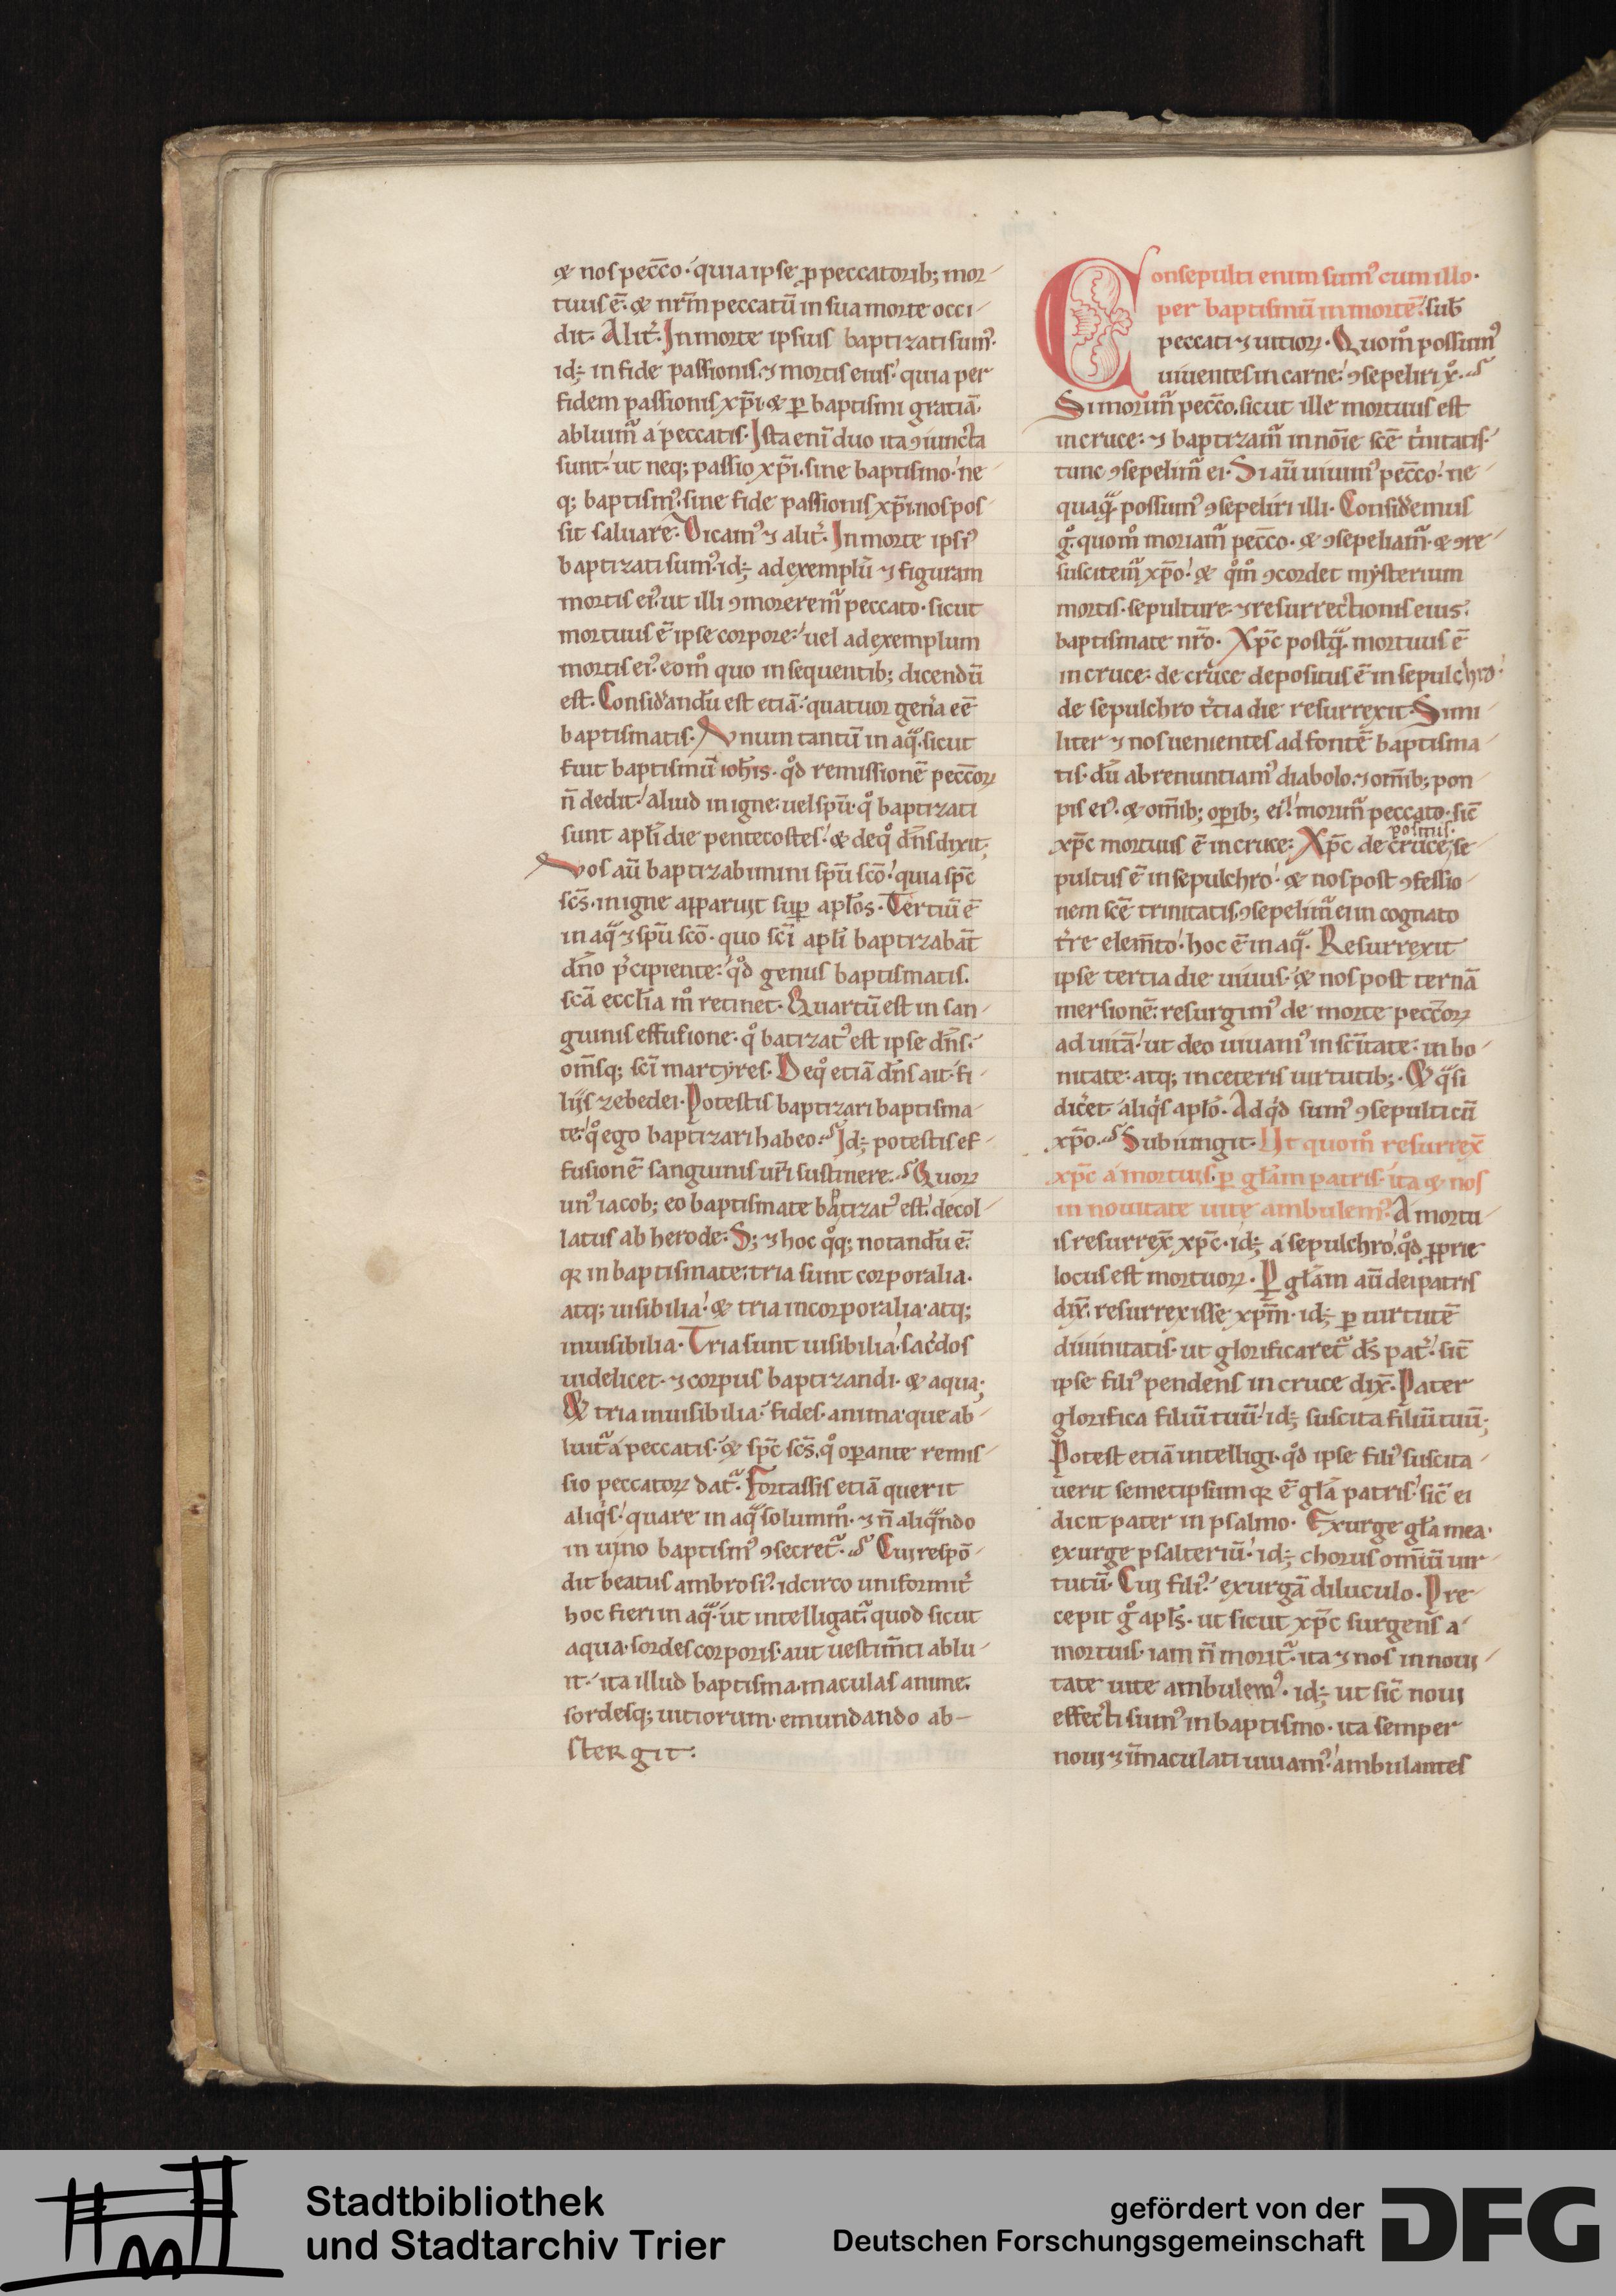 & nos pecc̄o· quia ipse ꝓ peccatorib; mor-
tuus ē· & nr̄m peccatū in sua morte occi-
dit· Alit̾· In morte ipsius baptizati sum᾽·
id; in fide passionis· ⁊ mortis eius· quia per
fidem passionis xp̄i· & ꝑ baptismi gratiā·
abluim̄ a peccatis· Ista eni duo ita ꝯiuncta
sunt· ut neq; passio xp̄i· sine baptismo· ne-
q; baptism᾽· sine fide passionis xp̄i· nos pos-
sit saluare· Dicam᾽ ⁊ alit̾· In morte ipsi᾽
baptizati sum᾽· id; ad exemplū ⁊ figuram
mortis ei᾽· ut illi ꝯmorerem̄ peccato· sicut
mortuus ē ipse corpore· uel ad exemplum
mortis ei᾽· eom̊ quo in sequentib; dicendū
est· Considandū est etiā· quatuor gen̾a eē
baptismatis· Vnum tantū in aq· sicut
fuit baptismū ioh̄is· qd remissionē peccoꝝ
n̄ dedit· aliud in igne· uel spū· q̊ baptizati
sunt apl̄i die pentecostes· & de q̊ dn̄s dixit;
Vos aū baptizabimini spū scō· quia sp̄c
sc̄s· in igne apparuit suꝑ apl̄os· Tertiū ē
in aq ⁊ spū scō· quo scī apl̄i baptizabāt
dn̄o p̾cipiente· qd genus baptismatis·
scā eccl̄ia m̊ retinet· Quartū est in san-
guinis effusione· q̊ batizat᾽ est ipse dn̄s·
om̄sq; scī martyres· De q̊ etiā dn̄s ait· fi-
lijs zebedei· Potestis baptizari baptisma-
te· q̊ ego baptizari habeo· Id; potestis ef-
fusionē sanguinis ur̄i sustinere· Quoꝝ
un᾽ iacob; eo baptismate batizat᾽ est· decol-
latus ab herode· S; ⁊ hoc q̊q; notandū ē·
qꝛ in baptismate· tria sunt corporalia·
atq; uisibilia· & tria incorporalia· atq;
inuisibilia· Tria sunt uisibilia· sac̾dos
uidelicet· ⁊ corpus baptizandi· & aqua;
& tria inuisibilia· fides· anima· que ab-
luit̄ a peccatis· & sp̄c sc̄s· q̊ oꝑante remis-
sio peccatoꝝ dat̄· Fortassis etiā querit
aliq̾s· quare in aq solumm̊· ⁊ n̄ aliqndo
in uino baptism᾽ ꝯsecret̄· Cui respō-
dit beatus ambrosi᾽· idcirco uniformit̾
hoc fieri in aq· ut intelligat̄ quod sicut
aqua· sordes corporis· aut uestim̄ti ablu-
it· ita illud baptisma· maculas anime·
sordesq; uitiorum· emundando ab-
stergit·
Consepulti enim sum᾽ cum illo·
per baptismū in mortē· sub
peccati ⁊ uitioꝝ· Quom̊ possum᾽
uiuentes in carne· ꝯsepeliri x̊·
Si morim̄ pecc̄o· sicut ille mortuus est
in cruce· ⁊ baptizam̄ in noīe scē t̾nitatis·
tunc ꝯsepelim̄ ei· Si aū uiuim᾽ pecc̄o· ne-
quaq̄· possum᾽ ꝯsepeliri illi· Consid̾emus
g̊· quom̊ moriam̄ pecc̄o· & ꝯsepeliam̄· & ꝯre-
suscitem̄ xp̄o· & q̊m̊ ꝯcordet mysterium
mortis· sepulture· ⁊ resurrectionis eius·
baptismate nr̄o· Xp̄c postq̄· mortuus ē
in cruce· de cruce depositus ē in sepulchro·
de sepulchro t̾tia die resurrexit· Simi-
liter ⁊ nos uenientes ad fontē baptisma-
tis· dū abrenuntiam᾽ diabolo· ⁊ om̄ib; pon-
pis ei᾽· & om̄ib; oꝑib; ei᾽· morim̄ peccato· sic̄
xp̄c mortuus ē in cruce· Xp̄c de cruce positus· se-
pultus ē in sepulchro· & nos post ꝯfessio-
nem scē trinitatis· ꝯsepelim̄ ei in cognato
t̾re elem̄to· hoc ē in aq· Resurrexit
ipse tertia die uiuus· & nos post ternā
mersionē· resurgim᾽ de morte peccoꝝ
ad uitā· ut deo uiuam᾽ in scītate· in bo-
nitate· atq; in ceteris uirtutib;· & qsi
dic̾et aliq̾s apl̄o· Ad q̾d sum᾽ ꝯsepulti cū
xp̄o· Subiungit· Ut quom̊ resurrex̄
xp̄c a mortuis· ꝑ gl̄am patris· ita & nos
in nouitate uite ambulem᾽· A mortu-
is resurrex̄ xp̄c· id; a sepulchro· qd ꝓprie
locus est mortuoꝝ· P gl̄am aū dei patris
dix̄· resurrexisse xp̄m· id; ꝑ uirtutē
diuinitatis· ut glorificaret̄ ds̄ pat̾· sic̄
ipse fili᾽ pendens in cruce dix̄· Pater
glorifica filiū tuū· id; suscita filiū tuū;
Potest etiā intelligi· qd ipse fili᾽ suscita-
uerit semetipsum qꝛ ē gl̄a patris· sic̄ ei
dicit pater in psalmo· Exurge gl̄a mea·
exurge psalteriū· id; chorus omīū uir-
tutū· Cui fili᾽· exurgā diluculo· Pre-
cepit g̊ apl̄s· ut sicut xp̄c surgens a
mortuis· iam n̄ morit̄· ita ⁊ nos in noui-
tate uite ambulem᾽· id; ut sic̄ noui
effecti sum᾽ in baptismo· ita semper
noui ⁊ īmaculati uiuam᾽· ambulantes
Stadtbibliothek
und Stadtarchiv Trier
gefördert von der
Deutschen Forschungsgemeinschaft
DFG